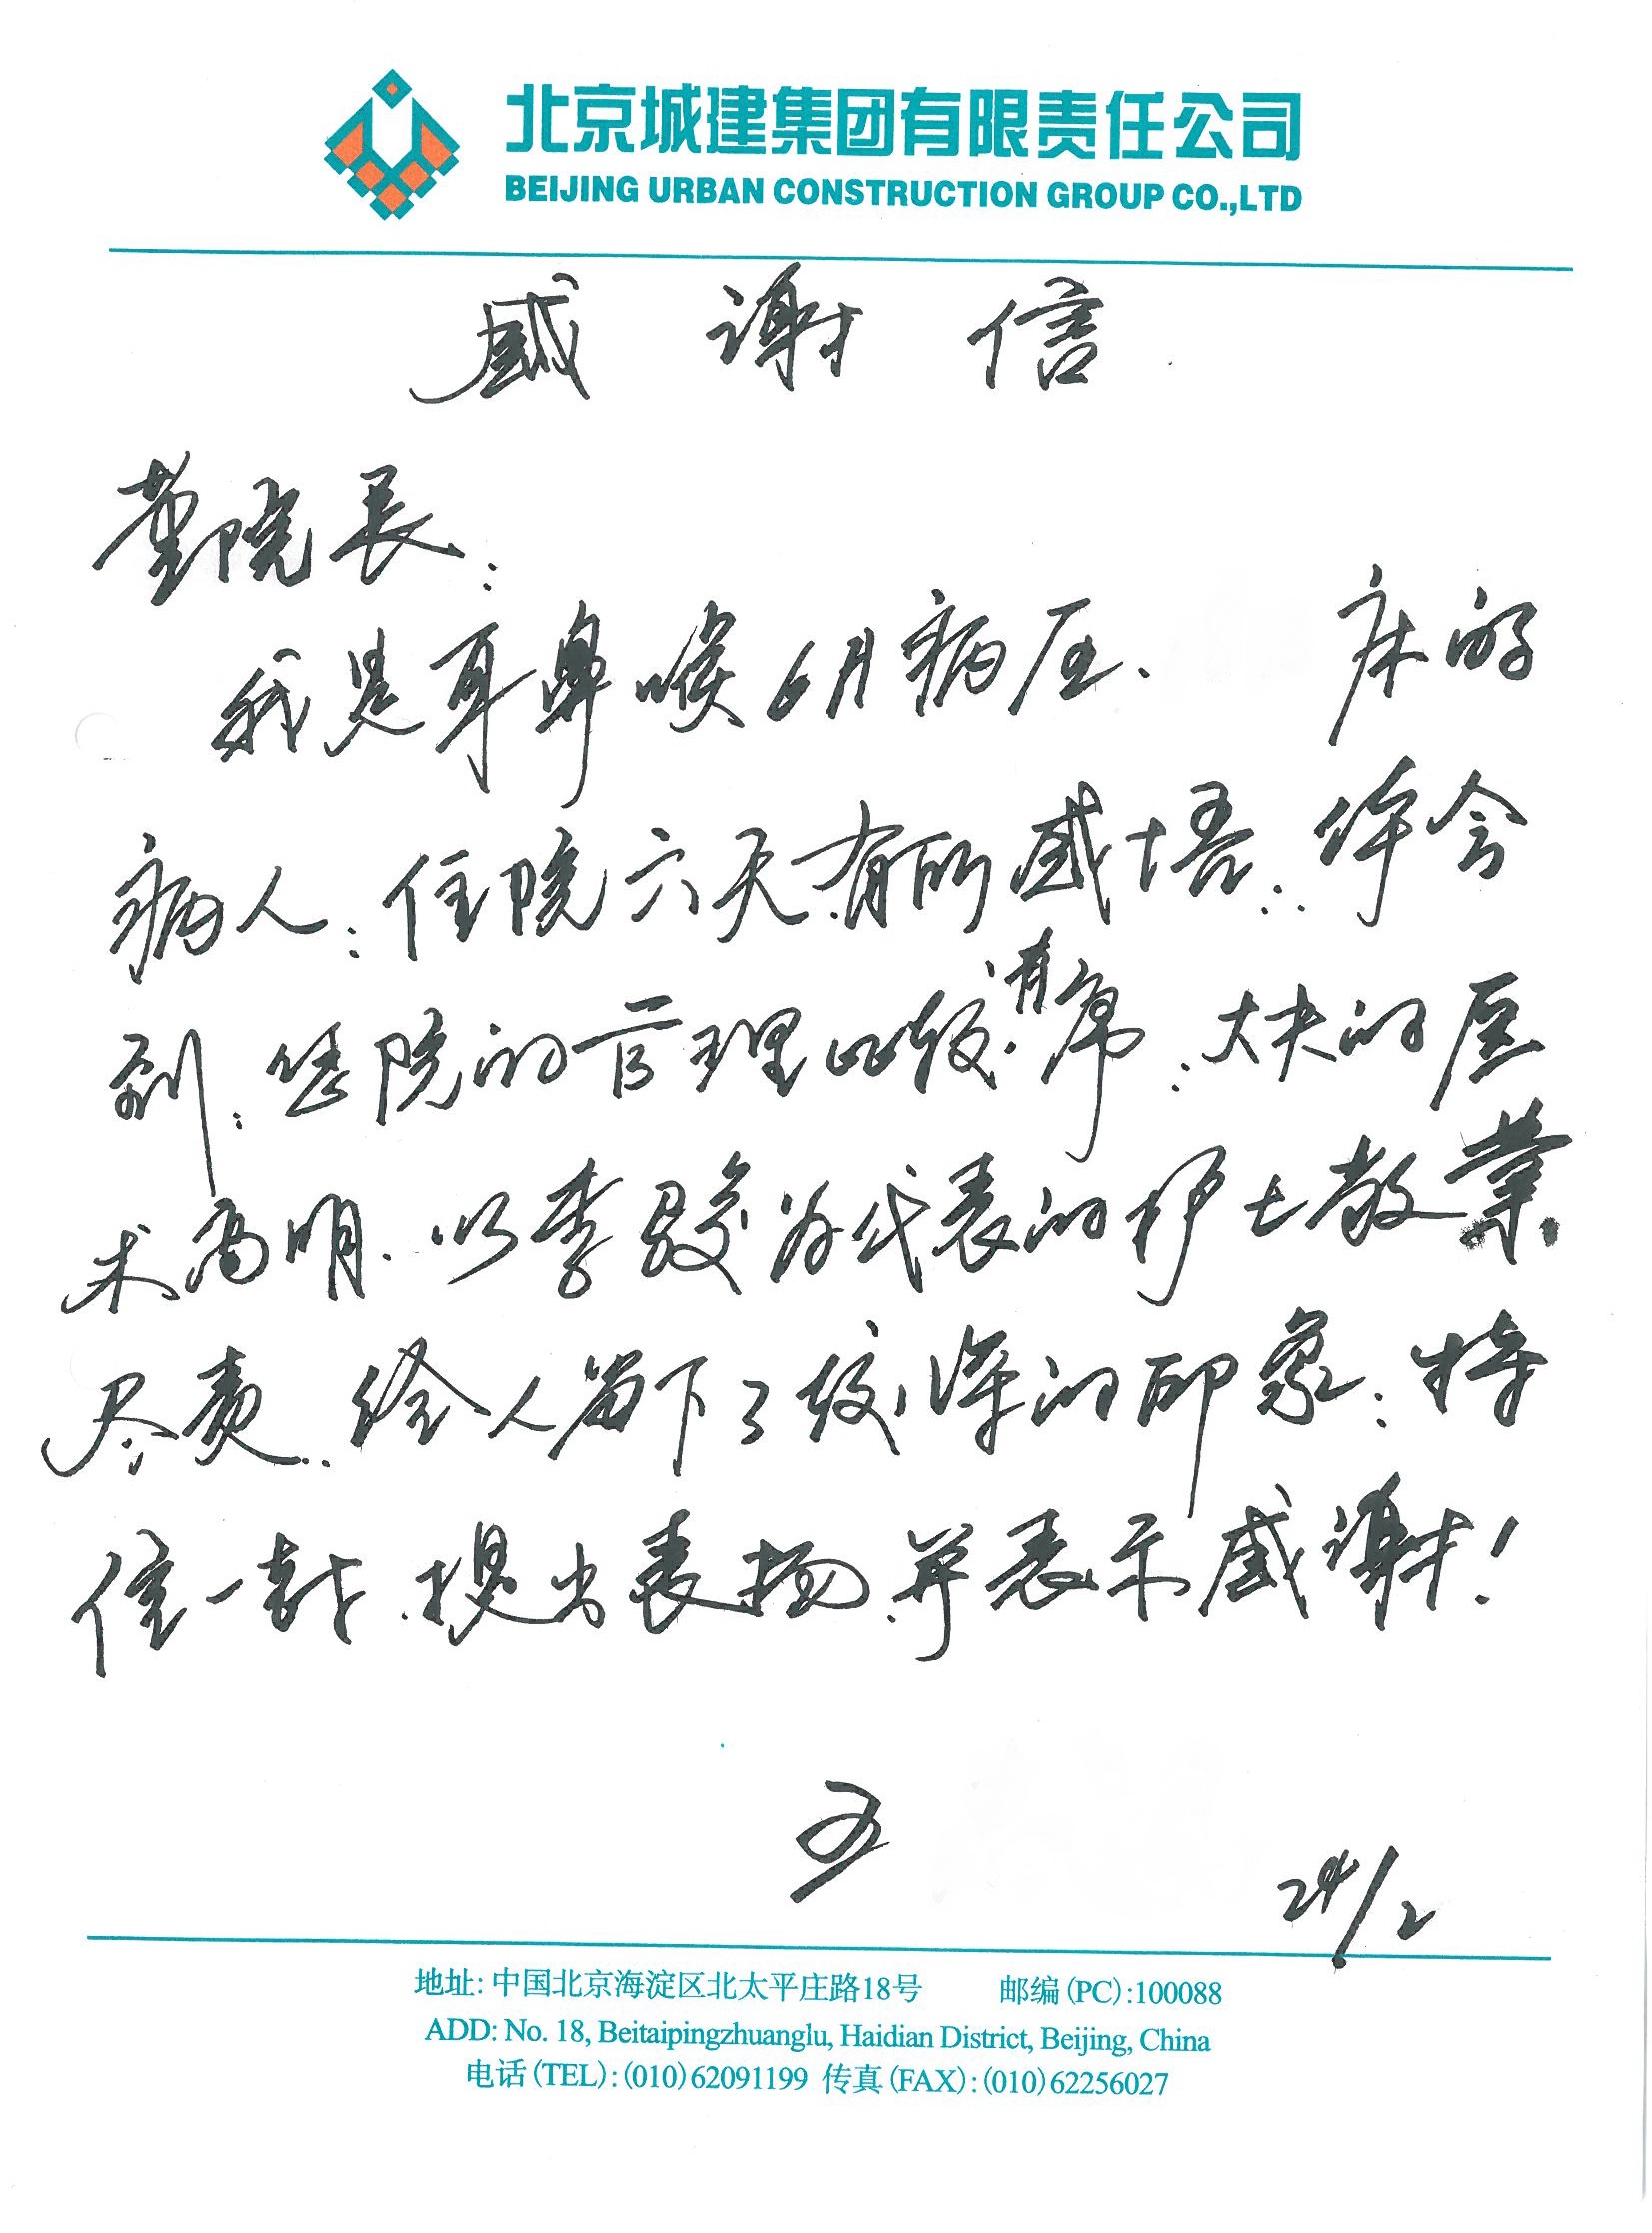 北京城建集团有限责任公司
BEIJING URBAN CONSTRUCTION GROUP CO.,LTD
感谢信
董院长:
我是耳鼻喉6月病区、床的
病人:住院六天.有所感悟:体会
到:医院的管理比较有序:大夫的医
术高明.以李毅为代表的护士敬业
尽责.给人留下了较深的印象:特
信一封.提出表扬.并表示感谢!
24/2
地址:中国北京海淀区北太平庄路18号 邮编(PC):100088
ADD: No. 18, Beitaipingzhuanglu, Haidian District, Beijing, China
电话(TEL):(010)62091199 传真(FAX):(010)62256027